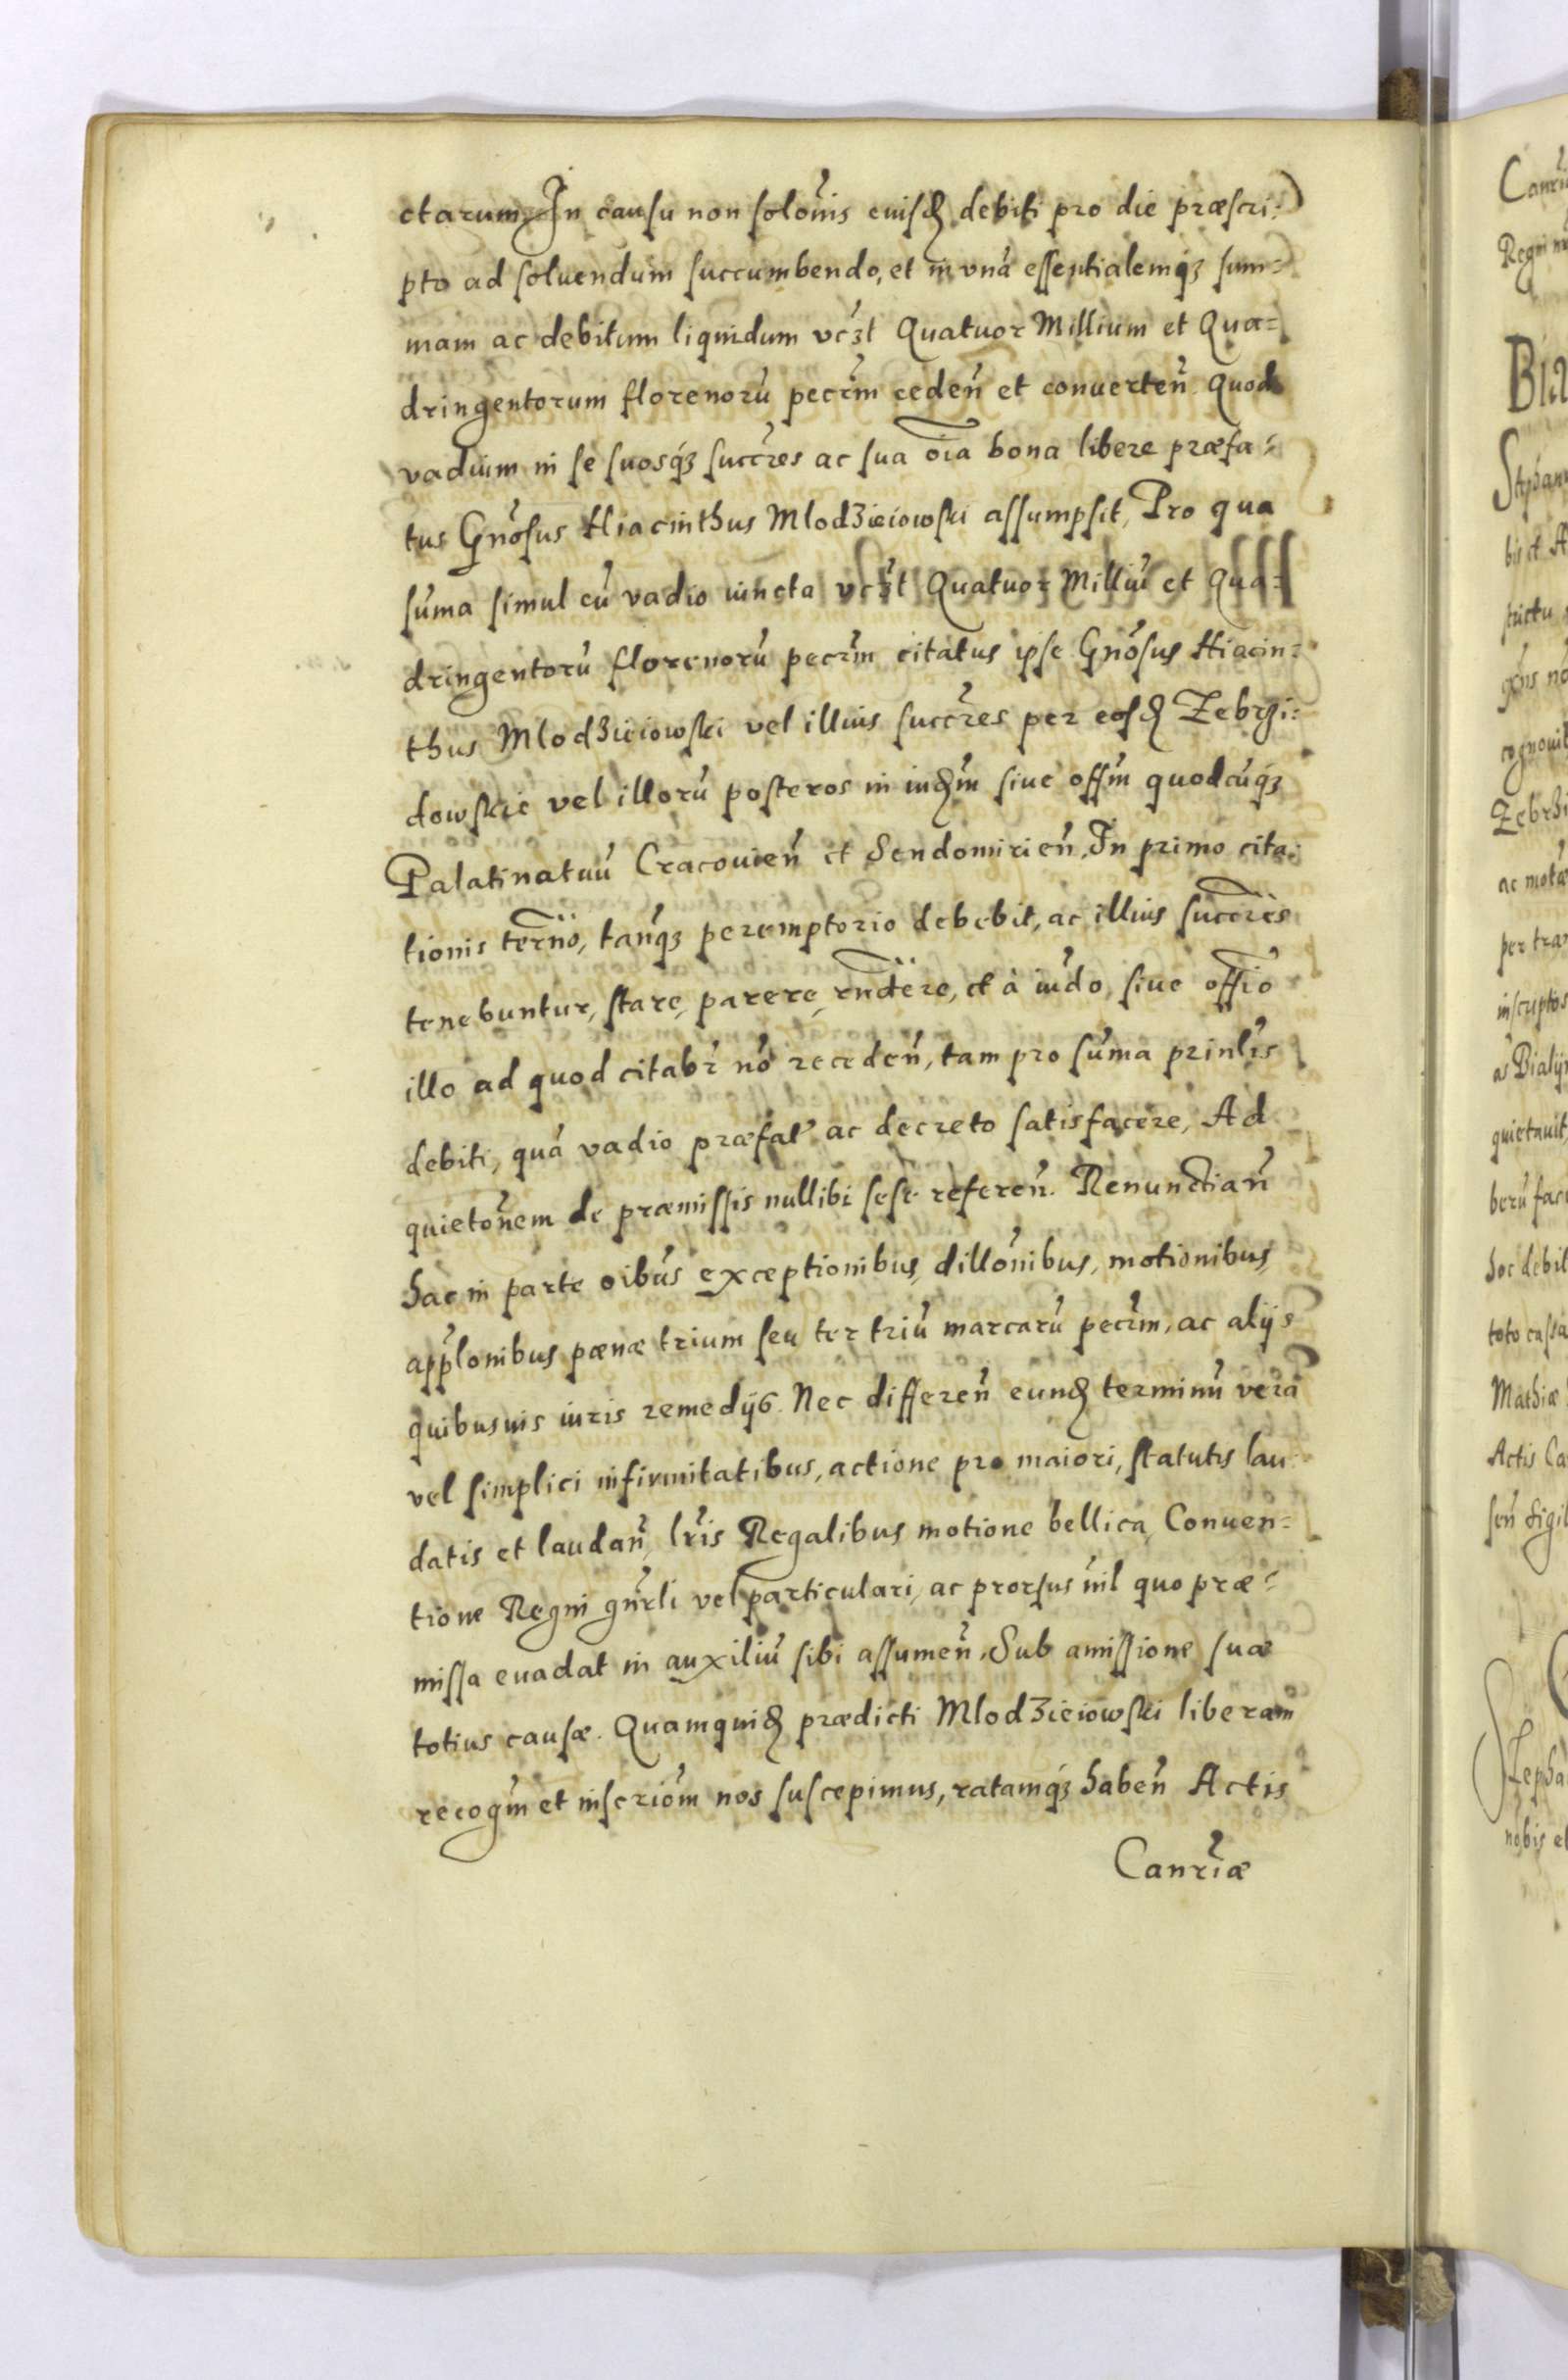 ctarum. In causu non solōnis euisđ debiti pro die præscri:
pto ad soluendum succumbendo, et in vnā essentialemq́ꝫ sum=
mam ac debitum liquidum vcꝫt Quatuor Millium et Qua=
dringentorum florenorū pecȓm cedeñ et conuerteñ. Quod
vadium in se suosq́ꝫ succȓes ac sua oīa bona libere præfa:
tus Gnōsus Hiacinthus Mlodzieiowski assumpsit, Pro qua
sūma simul cū vadio iuncta vcꝫt Quatuor Milliū et Qua=
dringentorū florenorū pecȓm citatus ipse Gnōsus Hiacin:
thus Mlodzieiowski vel illius succȓes per eosđ Zebrzi:
dowskie vel illorū posteros in iuđm siue offm̄ quodcūq́ꝫ
Palatinatuū Cracouieñ et Sendomirieñ. In primo cita:
tionis terñ̄o, tanq́ꝫ peremptorio debebit, ac illius succȓes
tenebuntur, stare, parere, rnd̄ere, et à iud̄o, siue offīo
illo ad quod citabȓ nō recedeñ, tam pro sūma prinl̄is
debiti, quā vadio præfat̓ ac decreto satisfacere, Ad
quietōnem de præmissis nullibi sese refereñ. Renunctiañ
hac in parte oībus exceptionibus, dillōnibus, motionibus,
appl̄onibus pœnæ trium seu ter triū marcarū pecȓm, ac alijs
quibusuis iuris remedijs. Nec differeñ eunđ terminū vera
vel simplici infirmitatibus, actione pro maiori, statutis lau
datis et laudañ, lr̄is Regalibus motione bellica, Conuen=
tione Regni gn̄rli vel particulari, ac prorsus nīl quo præ:
missa euadat in auxiliū sibi assumeñ. Sub amissione suæ
totius causæ. Quamquiđ prædicti Mlodzieiowski liberam
recogm̄ et inscriōm nos suscepimus, ratamq́ꝫ habeñ Actis
Canr̄iæ